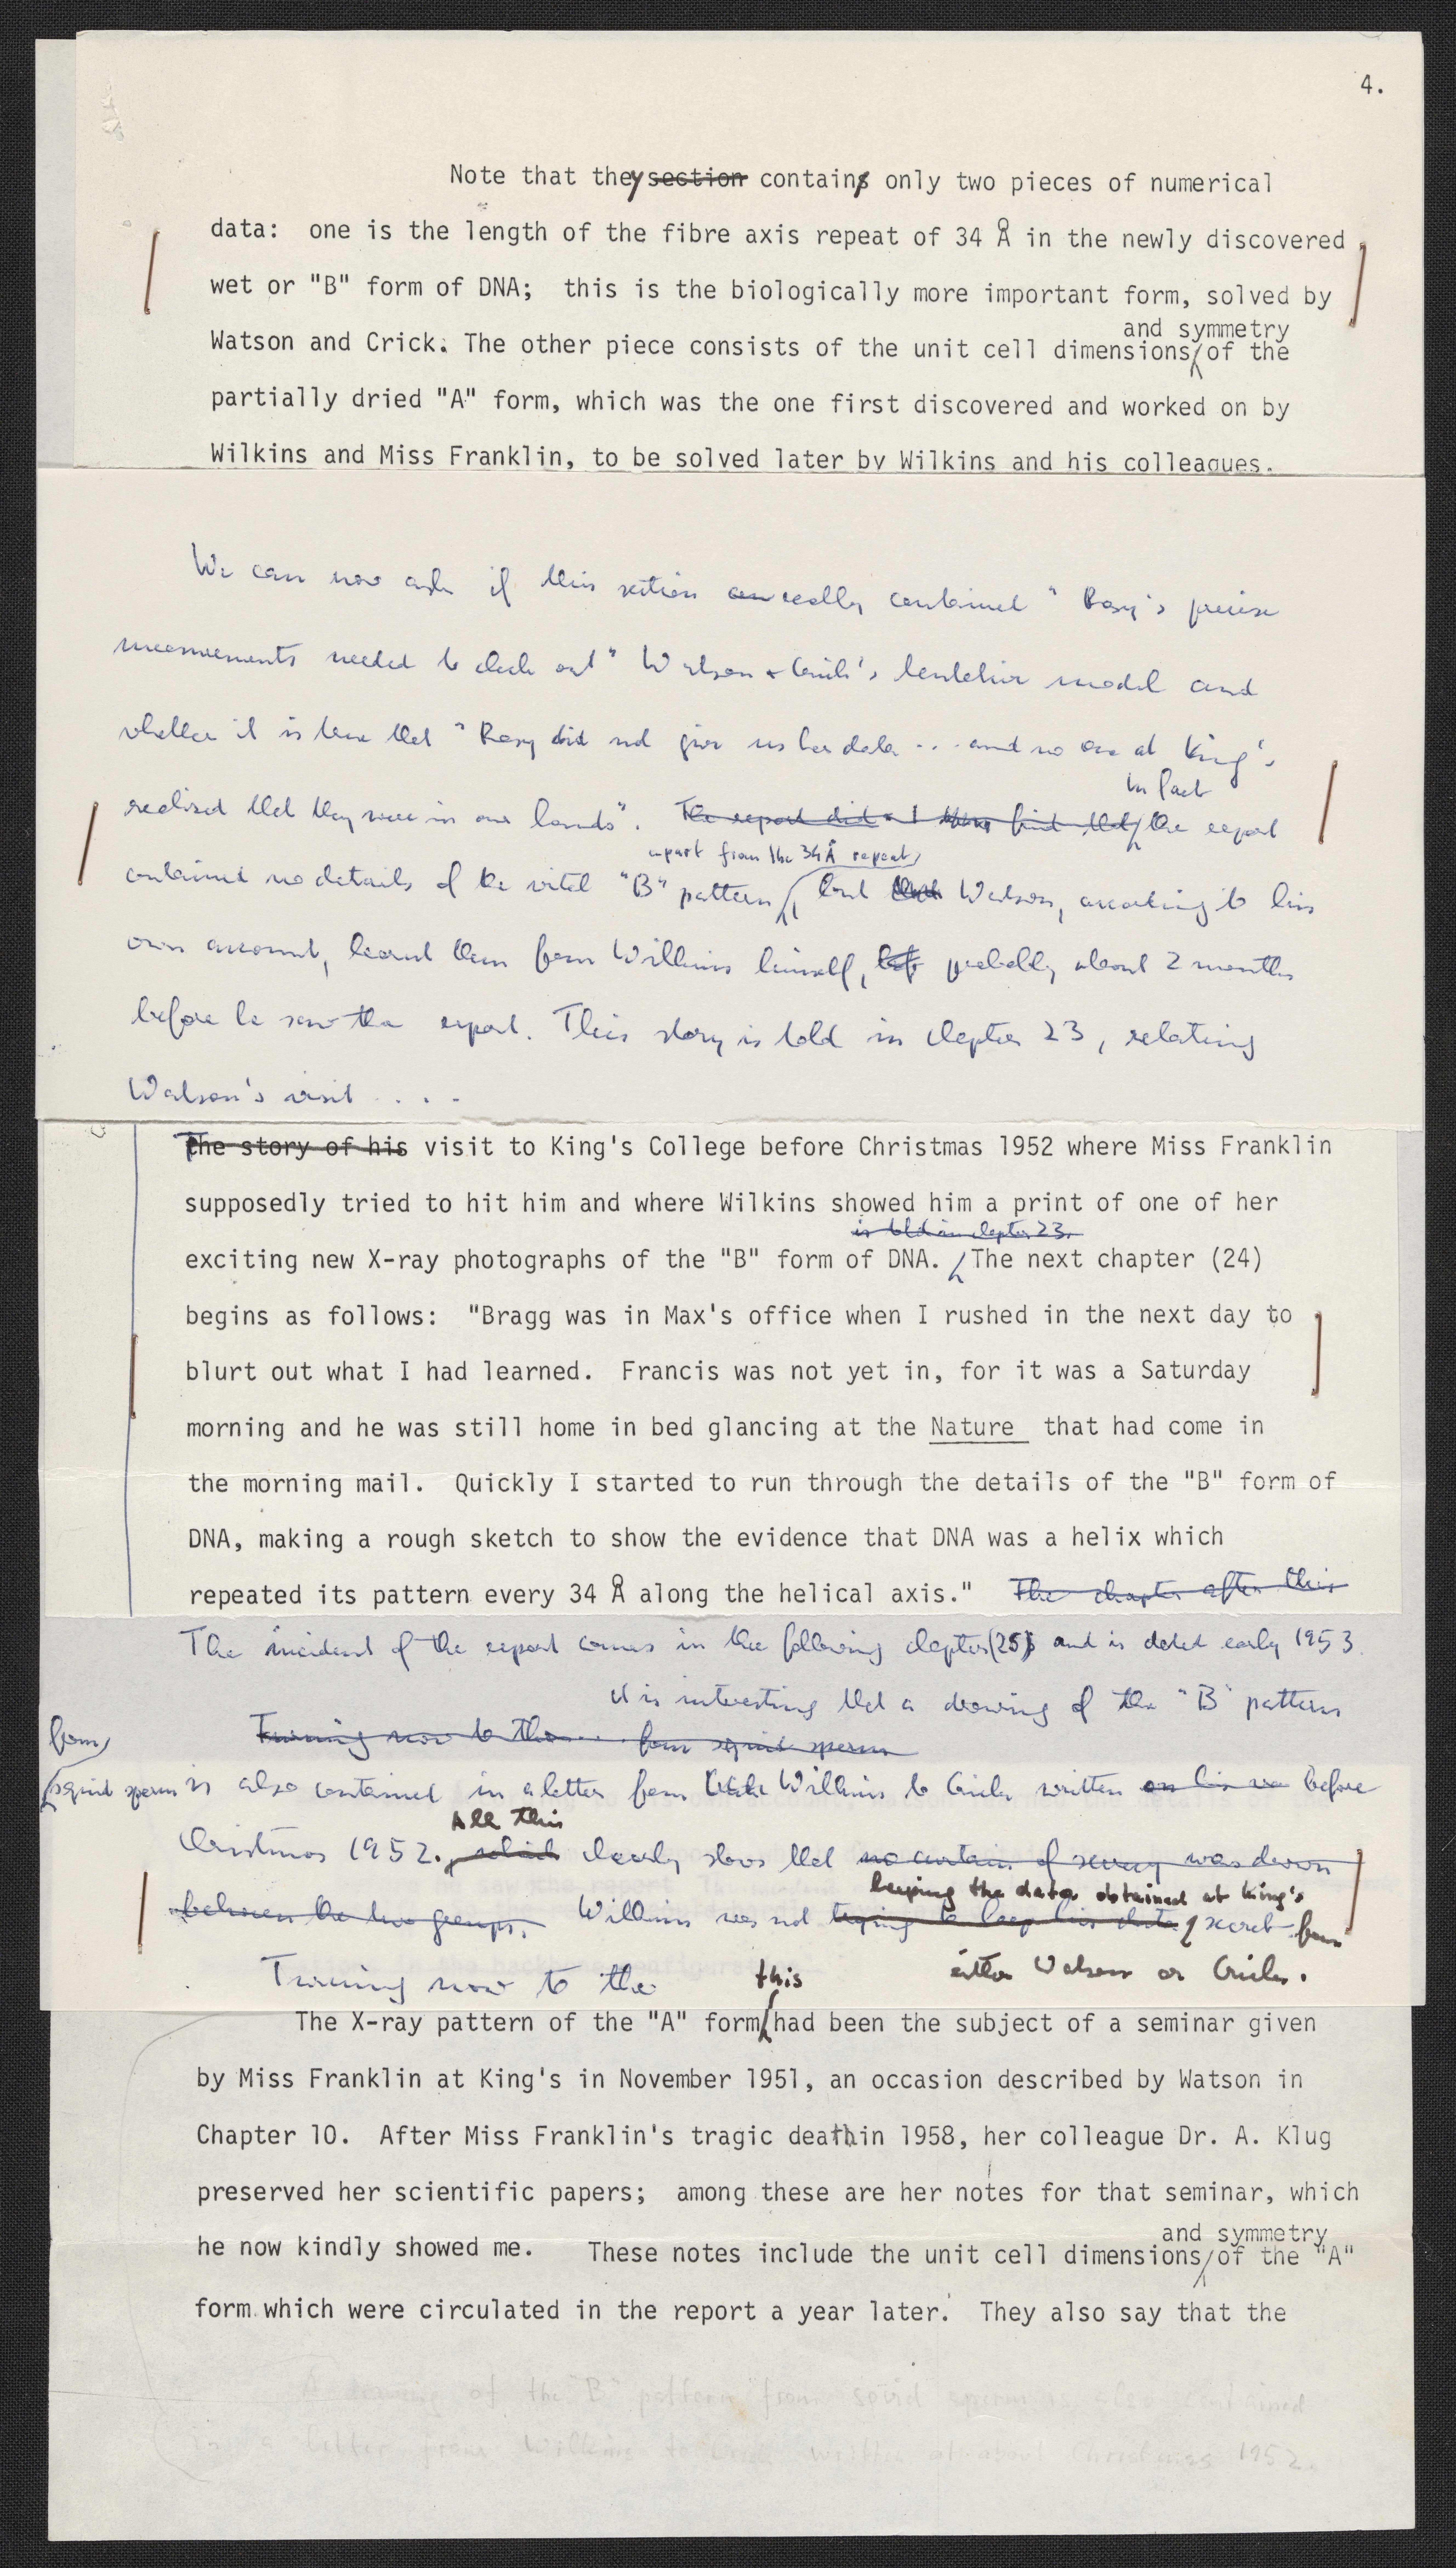 4.
Note that they section contains only two pieces of numerical
data: one is the length of the fibre axis repeat of 34 Å in the newly discovered
wet or "B" form of DNA; this is the biologically more important form, solved by
and symmetry
Watson and Crick. The other piece consists of the unit cell dimensions of the
partially dried "A" form, which was the one first discovered and worked on by
Wilkins and Miss Franklin, to be solved later by Wilkins and his colleagues.
We can now ask if this section really contained "Rosy's precise
measurements needed to check out" Watson + Crick's tentative model and
whether it is true that "Rosy did not give us her data ... and no one at King's
in fact
realized that they were in our hands". The report did find that the report
apart from the 34 Å repeat,
contained no details of the vital "B" pattern, but that Watson, according to his
own account, learnt them from Wilkins himself, probably about 2 months
before he saw the report. This story is told in chapter 23, relating
Watson's visit . . . .
The story of his visit to King's College before Christmas 1952 where Miss Franklin
supposedly tried to hit him and where Wilkins showed him a print of one of her
is told in chapter 23.
exciting new X-ray photographs of the "B" form of DNA. The next chapter (24)
begins as follows: "Bragg was in Max's office when I rushed in the next day to
blurt out what I had learned. Francis was not yet in, for it was a Saturday
morning and he was still home in bed glancing at the Nature that had come in
the morning mail. Quickly I started to run through the details of the "B" form of
DNA, making a rough sketch to show the evidence that DNA was a helix which
repeated its pattern every 34 Å along the helical axis." The chapter after this
The incident of the report comes in the following chapter (25) and is dated early 1953.
It is interesting that a drawing of the "B" pattern
from
Turning now to the ... from squid sperm
squid sperm is also contained in a letter from Wilkins to Crick written before
All this
Christmas 1952., which clearly shows that no curtain of secrecy was drawn
keeping the data obtained at King's
between the two groups. Wilkins was not trying to keep his data secret from
either Watson or Crick.
Turning now to the this
The X-ray pattern of the "A" form had been the subject of a seminar given
by Miss Franklin at King's in November 1951, an occasion described by Watson in
Chapter 10. After Miss Franklin's tragic death in 1958, her colleague Dr. A. Klug
preserved her scientific papers; among these are her notes for that seminar, which
and symmetry
he now kindly showed me. These notes include the unit cell dimensions of the "A"
form which were circulated in the report a year later. They also say that the
A drawing of the "B" pattern from squid sperm is also contained
in a letter from Wilkins to Crick written about Christmas 1952.